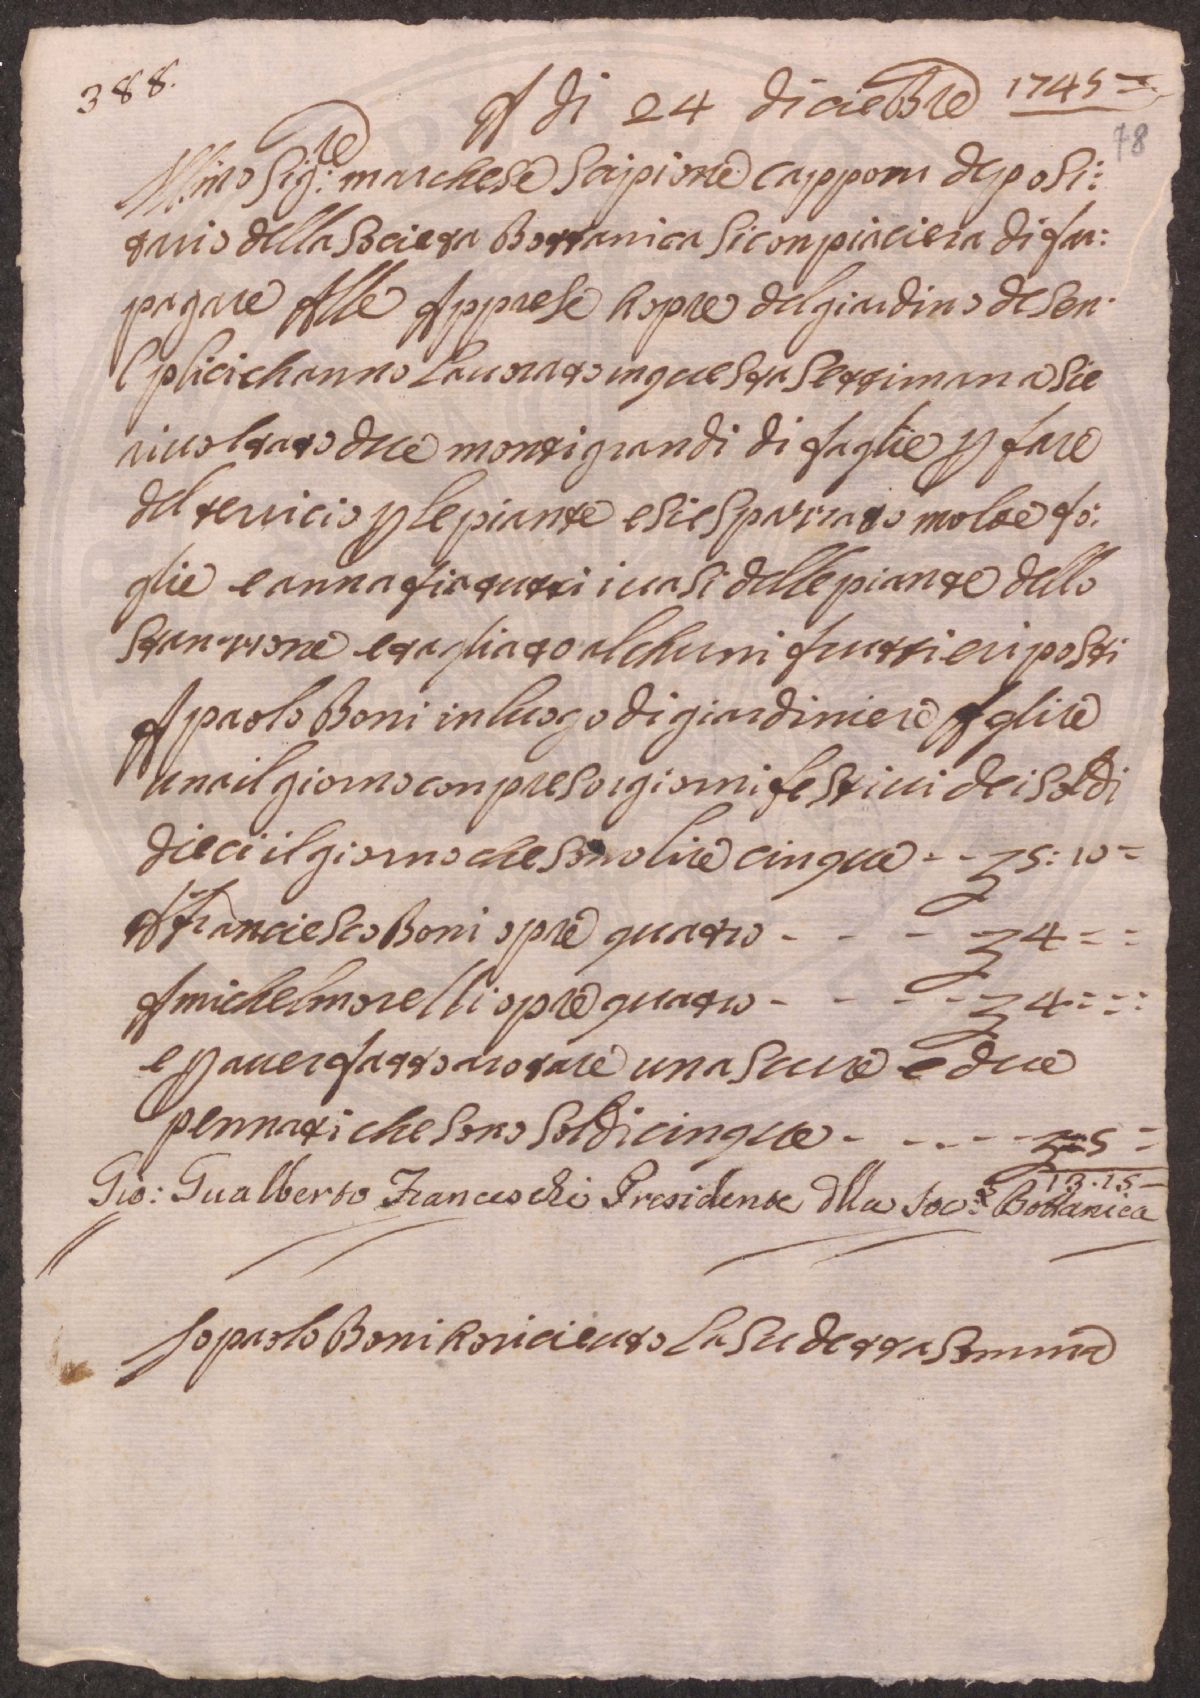 388.
A di 24 diciebre 1745 =
78
Ill:mo Sig:re marchese Scipione capponi deposi:
tario della Societa Bottanica Si conpiaciera di far:
pagare Alle Apprese hopre del giardino de Sen
plici channo Lauorato in questa Settimana Sie
riuoltato due monti grandi di foglie p fare
del terricio p le piante e sie Sparzato molte fo:
glie e annafiato tutti i uasi delle piante dello
Stanzzone e tagliato alchuni frutti e ri posti
A paolo Boni in luogo di giardiniere A glire
una il giorno conpreso i giorni festiui dei soldi
dieci il giorno che Sono lire cinque - - £ 5: 10 =
A Franciesco Boni opre quatro - - - - £ 4 = =
A michel morelli opre quatro - - - - £ 4 = = :
e p auer fatto arotare una Scure e due
pennati che Sono Soldi cinque - - - - - £ = 5 =
13.15 -
Gio: Gualberto Franceschi Presidente dlla Soc:a Bottanica
Io paolo Boni ho ricieuto La Su detta Somma